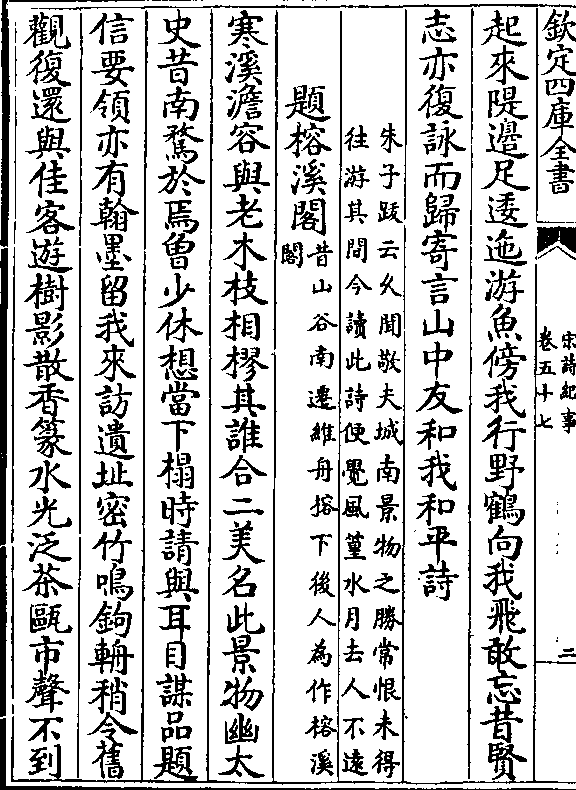 欽定四庫全書
宋詩紀事
卷五十七
二
起來隄邊足逶迤游魚傍我行野鶴向我飛敢忘昔賢
志亦復詠而歸寄言山中友和我和平詩
朱子跋云久聞敬夫城南景物之勝常恨未得
往游其間今讀此詩便覺風篁水月去人不遠
題榕溪閣
昔山谷南遷維舟榕下後人為作榕溪
閣
寒溪澹容與老木枝相樛其誰合二美名此景物幽太
史昔南騖於焉曾少休想當下榻時請與耳目謀品題
信要領亦有翰墨留我來訪遺址密竹鳴鉤輈稍令舊
觀復還與佳客遊樹影散香篆水光泛茶甌市聲不到